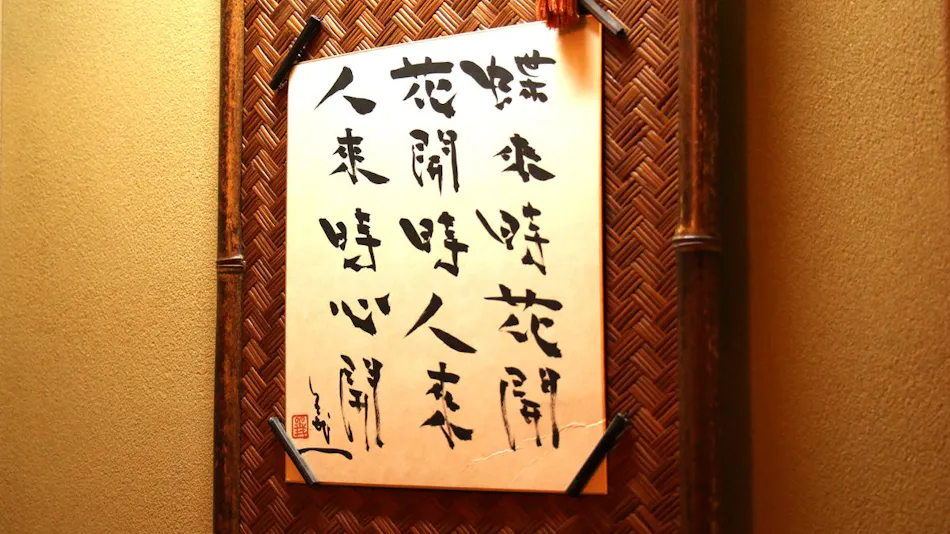 蝶來時花開
花開時人來
人来時心開